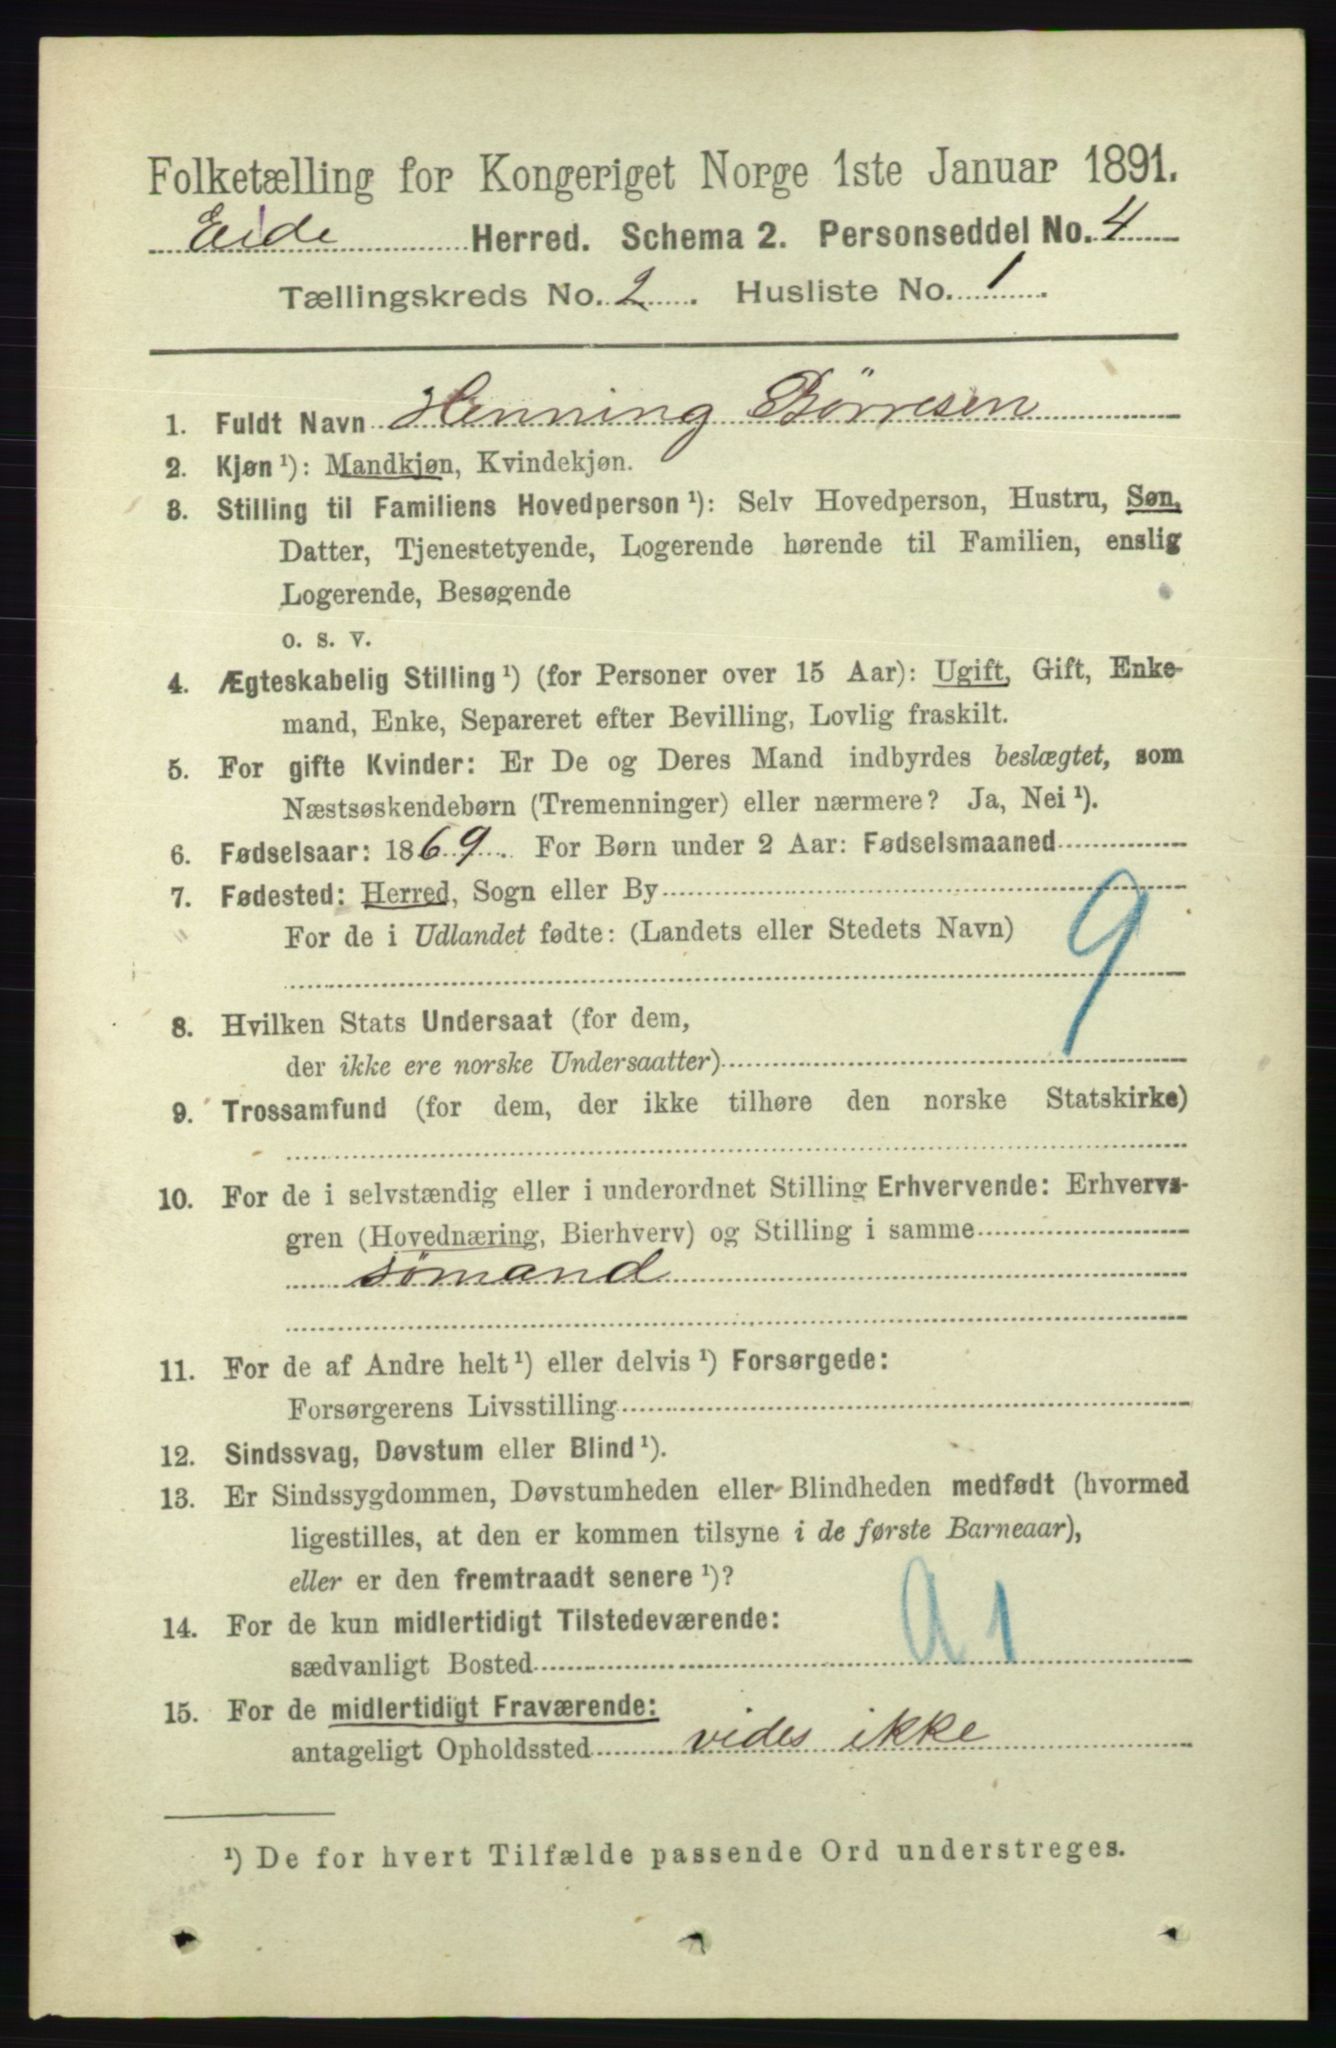 Folketælling for Kongeriget Norge 1ste Januar 1891.
Eide Herred. Schema 2. Personseddel No. 4
Tællingskreds No. 2. Husliste No. 1.
1. Fuldt Navn Henning Børresen
2. Kjøn ¹): Mandkjøn, Kvindekjøn.
3. Stilling til Familiens Hovedperson ¹): Selv Hovedperson, Hustru, Søn,
Datter, Tjenestetyende, Logerende hørende til Familien, enslig
Logerende, Besøgende
o. s. v.
4. Ægteskabelig Stilling ¹) (for Personer over 15 Aar): Ugift, Gift, Enke-
mand, Enke, Separeret efter Bevilling, Lovlig fraskilt.
5. For gifte Kvinder: Er De og Deres Mand indbyrdes beslægtet, som
Næstsøskendebørn (Tremenninger) eller nærmere? Ja, Nei ¹).
6. Fødselsaar: 1869. For Børn under 2 Aar: Fødselsmaaned
7. Fødested: Herred, Sogn eller By
For de i Udlandet fødte: (Landets eller Stedets Navn)
9
8. Hvilken Stats Undersaat (for dem,
der ikke ere norske Undersaatter)
9. Trossamfund (for dem, der ikke tilhøre den norske Statskirke)
10. For de i selvstændig eller i underordnet Stilling Erhvervende: Erhvervs-
gren (Hovednæring, Bierhverv) og Stilling i samme
sømand
11. For de af Andre helt ¹) eller delvis ¹) Forsørgede:
Forsørgerens Livsstilling
12. Sindssvag, Døvstum eller Blind ¹).
13. Er Sindssygdommen, Døvstumheden eller Blindheden medfødt (hvormed
ligestilles, at den er kommen tilsyne i de første Barneaar),
eller er den fremtraadt senere ¹)?
14. For de kun midlertidigt Tilstedeværende:
sædvanligt Bosted
a 1
15. For de midlertidigt Fraværende:
antageligt Opholdssted vides ikke
¹) De for hvert Tilfælde passende Ord understreges.